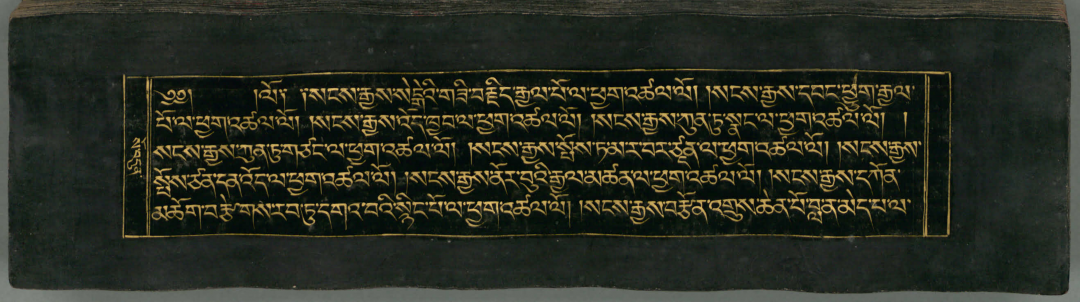 ༄༅། །ལོ༔ ༔སངས་རྒྱས་སེངྒེའི་གཟི་བརྗིད་རྒྱལ་པོ་ལ་ཕྱག་འཚལ་ལོ། །སངས་རྒྱས་དབང་ཕྱུག་རྒྱལ་
པོ་ལ་ཕྱག་འཚལ་ལོ། །སངས་རྒྱས་འོད་ཁྱབ་ལ་ཕྱག་འཚལ་ལོ། །སངས་རྒྱས་ཀུན་ཏུ་སྣང་ལ་ཕྱག་འཚལ་ལོ། །
སངས་རྒྱས་ཀུན་ཏུ་གཙང་ལ་ཕྱག་འཚལ་ལོ། །སངས་རྒྱས་སྤོས་དམར་བར་ལ་ཕྱག་འཚལ་ལོ། །སངས་རྒྱས་
སྤོས་ཙན་དན་འོད་ལ་ཕྱག་འཚལ་ལོ། །སངས་རྒྱས་ནོར་བུའི་རྒྱལ་མཚན་ལ་ཕྱག་འཚལ་ལོ། །སངས་རྒྱས་དཀོན་
མཆོག་རབ་ཏུ་དགའ་བའི་སྙིང་པོ་ལ་ཕྱག་འཚལ་ལོ། །སངས་རྒྱས་བརྩོན་འགྲུས་ཆེན་པོ་བླན་མེད་པ་ལ་